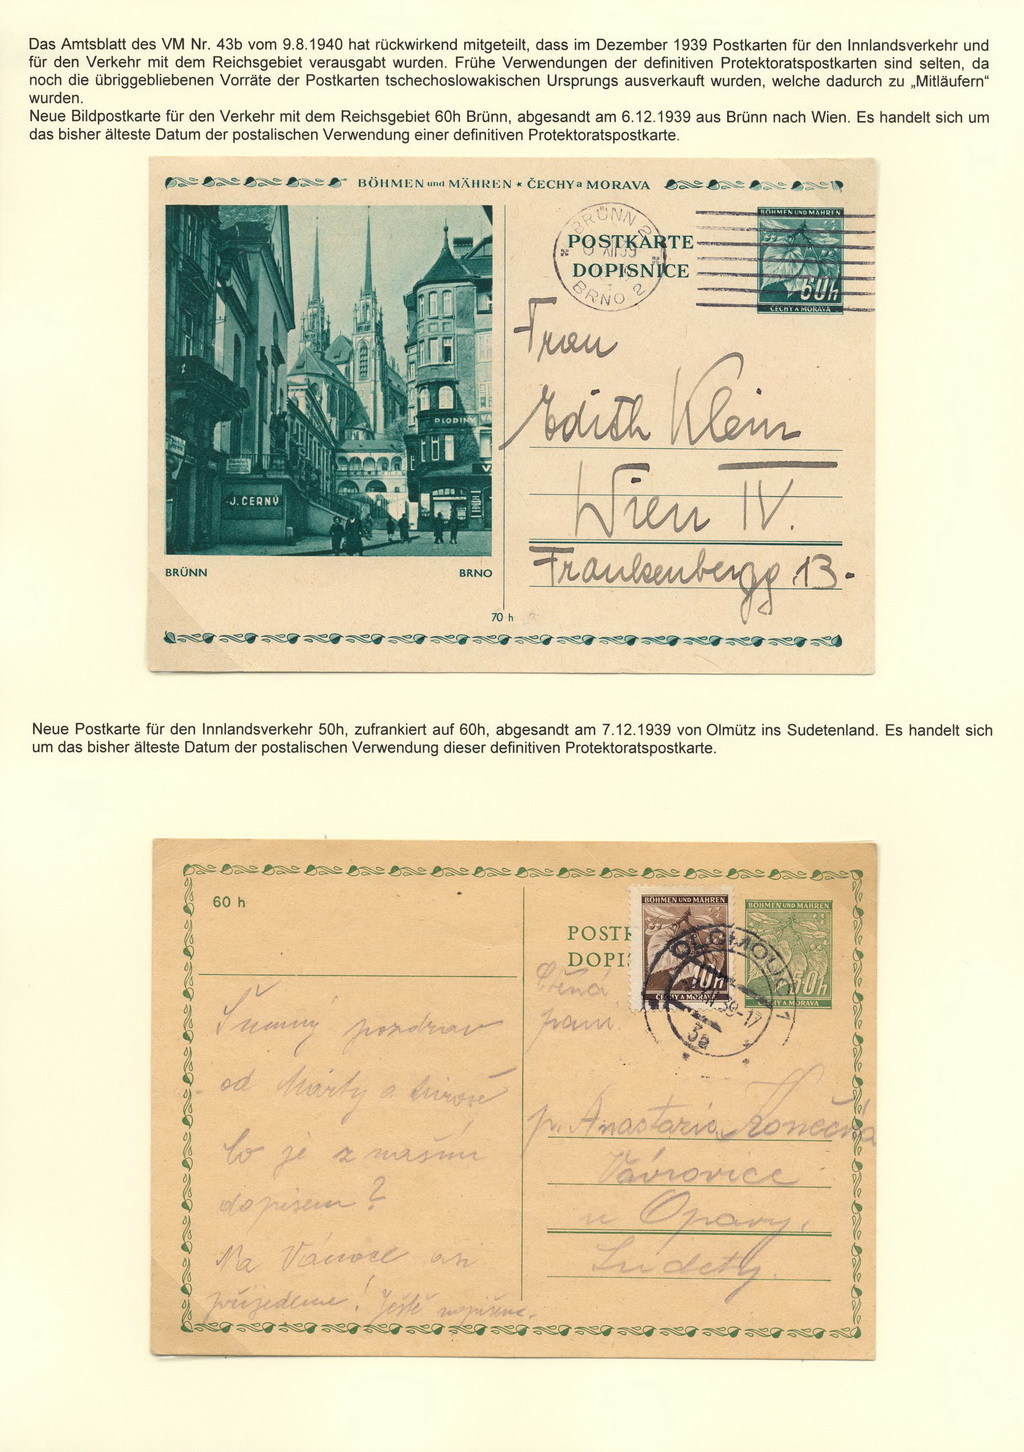 Das Amtsblatt des VM Nr. 43b vom 9.8.1940 hat rückwirkend mitgeteilt, dass im Dezember 1939 Postkarten für den Innlandsverkehr und
für den Verkehr mit dem Reichsgebiet verausgabt wurden. Frühe Verwendungen der definitiven Protektoratspostkarten sind selten, da
noch die übriggebliebenen Vorräte der Postkarten tschechoslowakischen Ursprungs ausverkauft wurden, welche dadurch zu „Mitläufern“
wurden.
Neue Bildpostkarte für den Verkehr mit dem Reichsgebiet 60h Brünn, abgesandt am 6.12.1939 aus Brünn nach Wien. Es handelt sich um
das bisher älteste Datum der postalischen Verwendung einer definitiven Protektoratspostkarte.
BÖHMEN und MÄHREN * ČECHY a MORAVA
BRÜNN 2
XII 39
BRNO 2
POSTKARTE
DOPISNICE
BÖHMEN UND MÄHREN
60h
ČECHY A MORAVA
PLODINY
J. ČERNÝ
Frau
Edith Klein
Wien IV.
Frankenbergg. 13.
BRÜNN BRNO
70 h
Neue Postkarte für den Innlandsverkehr 50h, zufrankiert auf 60h, abgesandt am 7.12.1939 von Olmütz ins Sudetenland. Es handelt sich
um das bisher älteste Datum der postalischen Verwendung dieser definitiven Protektoratspostkarte.
60 h
POSTK
DOPIS
BÖHMEN UND MÄHREN
10h
ČECHY A MORAVA
BÖHMEN UND MÄHREN
50h
ČECHY A MORAVA
OLOMOUC 1
XII 39-17
3a
Ctěná
paní
p. Anastazia Konečná
Vávrovice
u Opavy,
Sudety.
Srdečný pozdrav
od Márty a
Co je z naším
dopisem?
Na Vánoce asi
přijedeme! Ještě napíšeme.